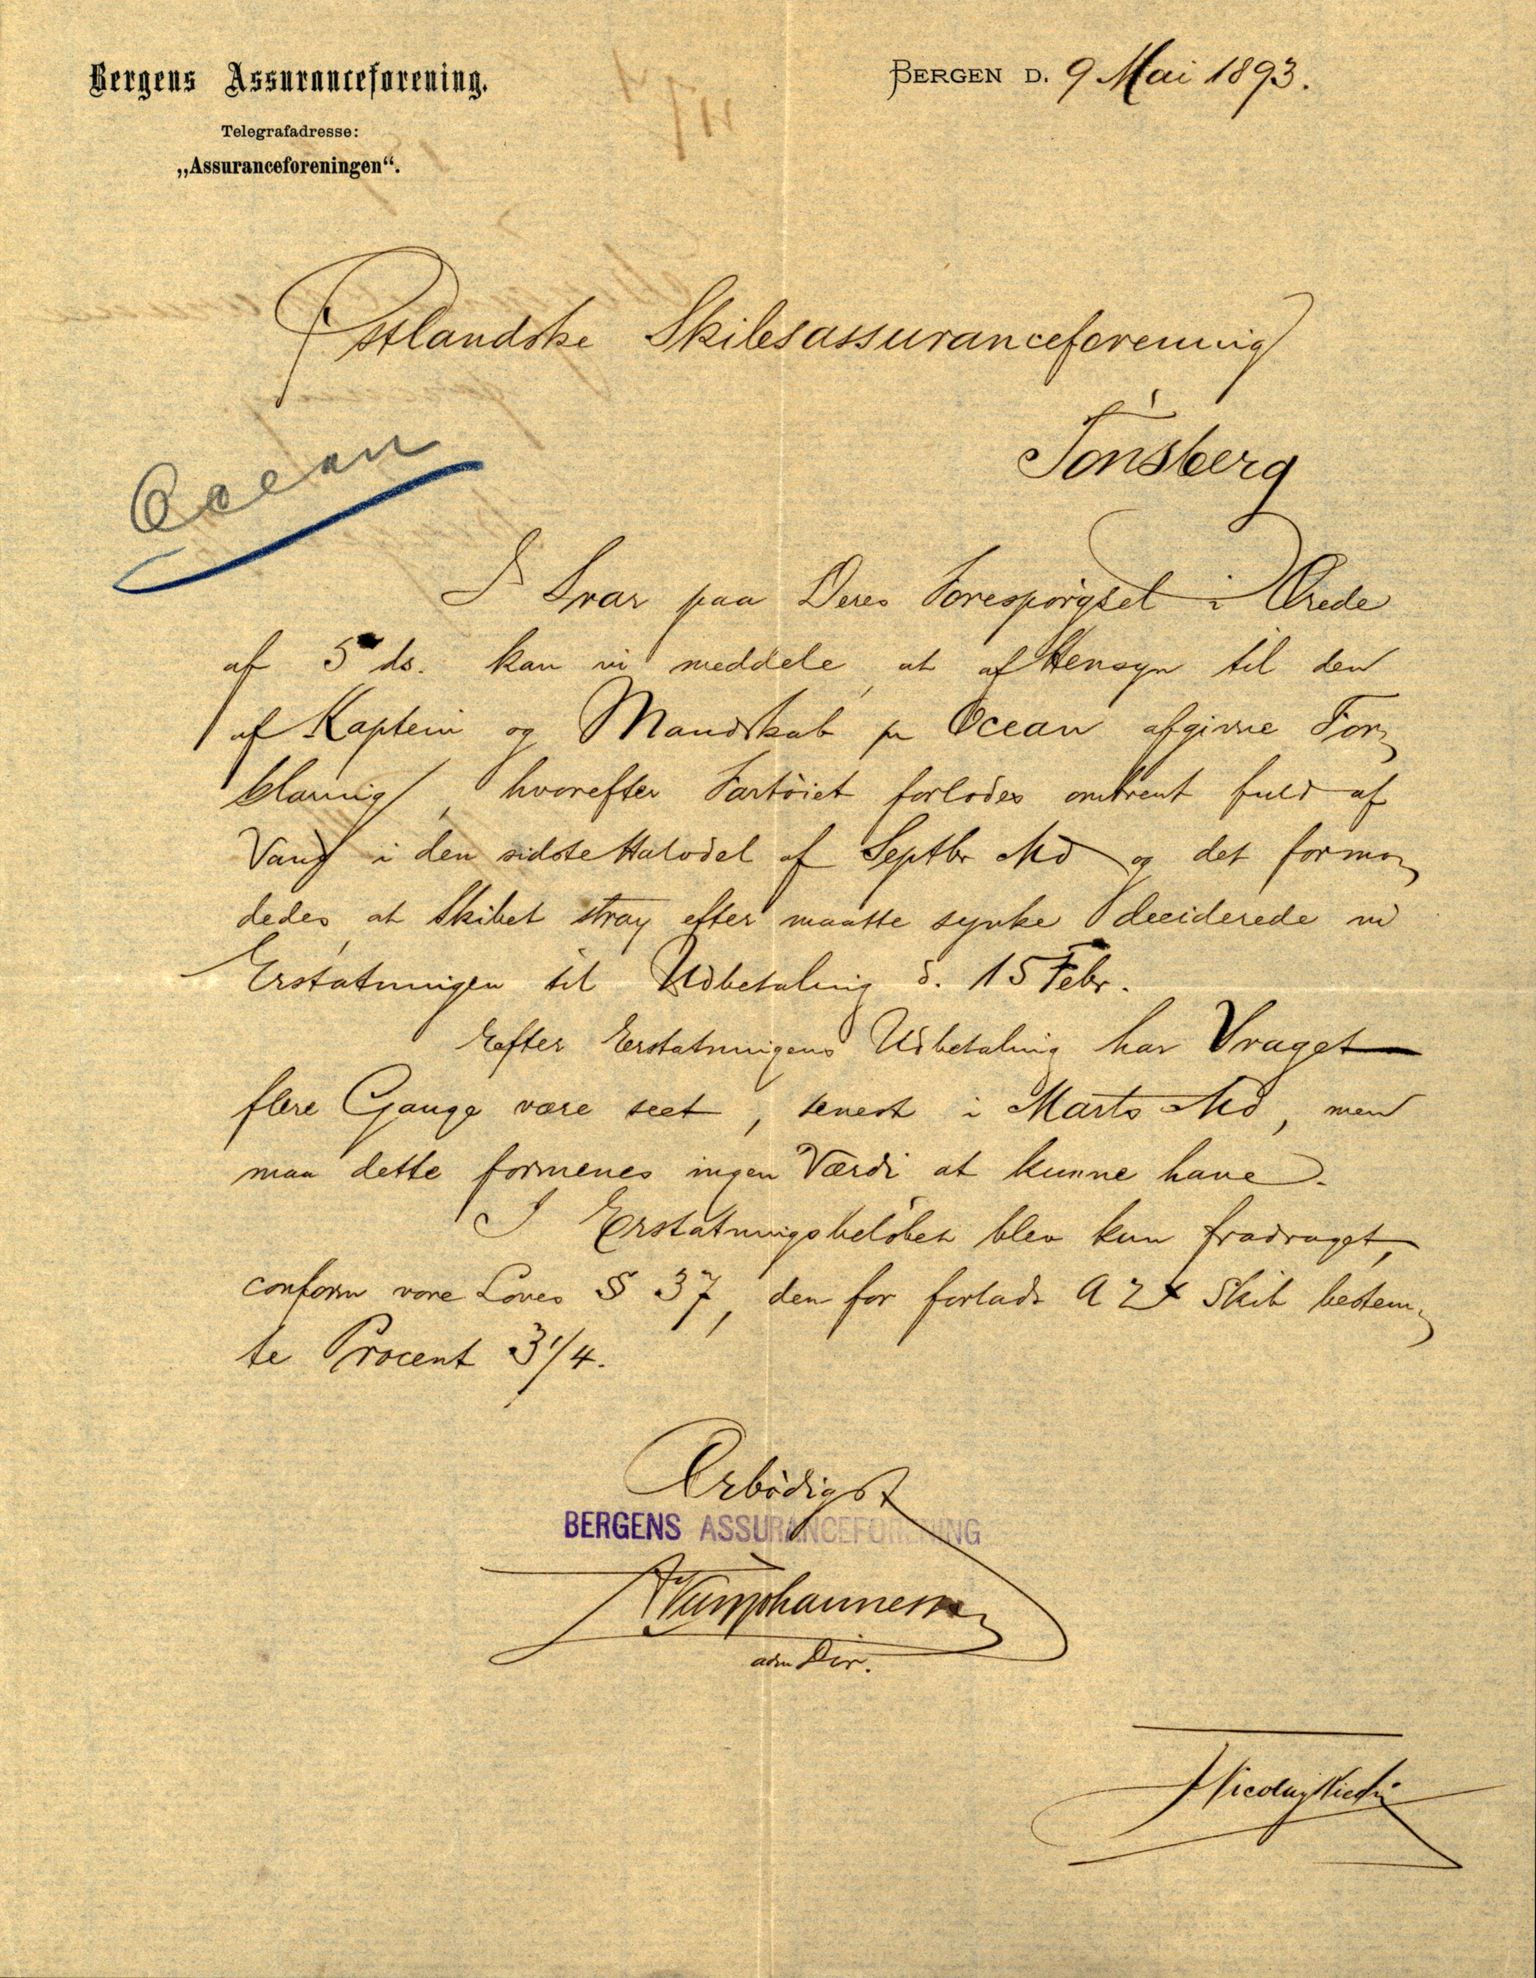 Bergens Assuranceforening.
Telegrafadresse:
„Assuranceforeningen“.
BERGEN D. 9 Mai 1893.
Østlandske Skibsassuranceforening
Tönsberg
Ocean
I Svar paa Deres Forespörgsel i Ærede
af 5 ds. kan vi meddele, at af Hensyn til den
af Kaptein og Mandskab pr Ocean afgivne For-
klaring, hvorefter Fartöiet forlodes omtrent fuld af
Vand i den sidste Halvdel af Septbr Md og det formo-
dedes, at Skibet strax efter maatte synke deciderede vi
Erstatningen til Udbetaling d. 15 Febr.
Efter Erstatningens Udbetaling har Vraget
flere Gange være seet, senest i Marts Md, men
maa dette formenes ingen Værdi at kunne have.
I Erstatningsbelöbet blev kun fradraget,
conform vore Loves § 37, den for forladt A 2 Skib bestem-
te Procent 3 1/4.
Ærbödigst
BERGENS ASSURANCEFORENING
adm Dir.
Nicolay